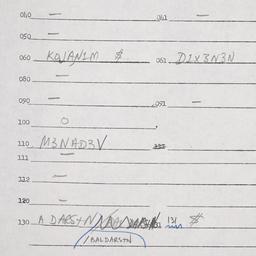 040 — 041 —
050 —
060 KOVANIM $ 061 DIX3N3N
080 —
090 — 091 —
100 O
110 M3NAD3V
111 —
112 —
120 —
130 A DARS+N 131 $
BALDARS+N